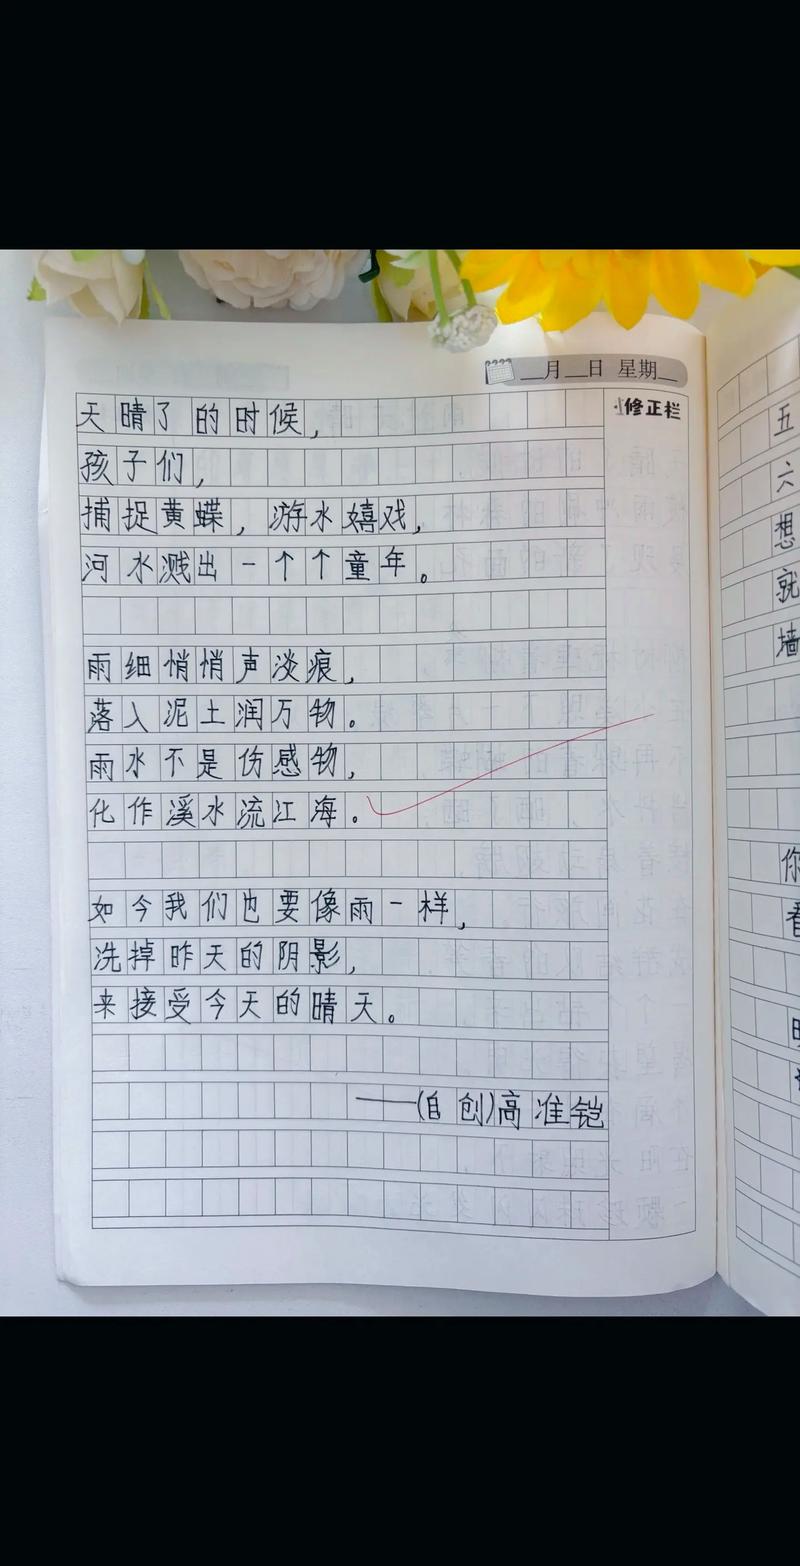 __月__日 星期__
修正栏
天晴了的时候，
孩子们，
捕捉黄蝶，游水嬉戏，
河水溅出一个个童年。
雨细悄悄声淡痕，
落入泥土润万物。
雨水不是伤感物，
化作溪水流江海。
如今我们也要像雨一样，
洗掉昨天的阴影，
来接受今天的晴天。
——(自创)高准铠
五
六
想
就
墙
你
看